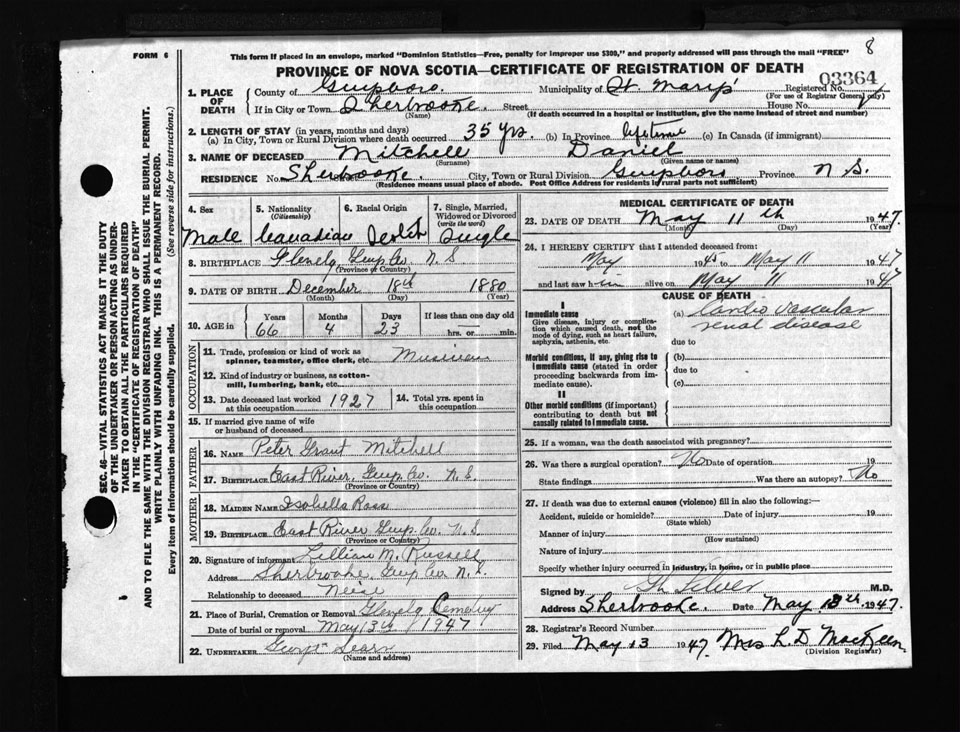 FORM 6
This form if placed in an envelope, marked "Dominion Statistics—Free, penalty for improper use $300," and properly addressed will pass through the mail "FREE"
8
PROVINCE OF NOVA SCOTIA—CERTIFICATE OF REGISTRATION OF DEATH
03364
1. PLACE OF DEATH
County of Guysboro. Municipality of St. Mary's Registered No.
(For use of Registrar General only)
If in City or Town Sherbrooke. Street House No.
(Name) (If death occurred in a hospital or institution, give the name instead of street and number)
2. LENGTH OF STAY (in years, months and days)
(a) In City, Town or Rural Division where death occurred 35 yrs. (b) In Province lifetime (c) In Canada (if immigrant)
3. NAME OF DECEASED Mitchell Daniel
(Surname) (Given name or names)
RESIDENCE No. Sherbrooke. Street City, Town or Rural Division Guysboro Province N S.
(Residence means usual place of abode. Post Office Address for residents in rural parts not sufficient)
4. Sex Male
5. Nationality (Citizenship) Canadian
6. Racial Origin Scotch
7. Single, Married, Widowed or Divorced (write the word) Single
8. BIRTHPLACE Glenelg Guys Co. N. S
(Province or Country)
9. DATE OF BIRTH December 18th 1880
(Month) (Day) (Year)
10. AGE in Years 66 Months 4 Days 23 If less than one day old hrs. or min.
OCCUPATION
11. Trade, profession or kind of work as spinner, teamster, office clerk, etc.
12. Kind of industry or business, as cotton-mill, lumbering, bank, etc.
13. Date deceased last worked at this occupation 1927
14. Total yrs. spent in this occupation
15. If married give name of wife or husband of deceased
FATHER
16. NAME Peter Grant Mitchell
17. BIRTHPLACE East River, Guys Co. N. S.
(Province or Country)
MOTHER
18. MAIDEN NAME Isabella Ross
19. BIRTHPLACE East River Guys Co. N. S
(Province or Country)
20. Signature of informant Lillian M. Russell
Address Sherbrooke, Guys Co N. S.
Relationship to deceased Neice
21. Place of Burial, Cremation or Removal Glenelg Cemetery
Date of burial or removal May 13th / 1947
22. UNDERTAKER
(Name and address)
MEDICAL CERTIFICATE OF DEATH
23. DATE OF DEATH May 11th 1947.
(Month) (Day) (Year)
24. I HEREBY CERTIFY that I attended deceased from:
May 1945 to May 11 1947
and last saw him alive on May 11 1947
CAUSE OF DEATH
I
Immediate cause
Give disease, injury or complication which caused death, not the mode of dying, such as heart failure, asphyxia, asthenia, etc.
(a) Cardio vascular
renal disease
due to
Morbid conditions, if any, giving rise to immediate cause (stated in order proceeding backwards from immediate cause).
(b)
due to
(c)
II
Other morbid conditions (if important) contributing to death but not causally related to immediate cause.
25. If a woman, was the death associated with pregnancy?
26. Was there a surgical operation? No Date of operation 19
State findings Was there an autopsy? No
27. If death was due to external causes (violence) fill in also the following:—
Accident, suicide or homicide? Date of injury 19
(State which)
Manner of injury
(How sustained)
Nature of injury
Specify whether injury occurred in industry, in home, or in public place
Signed by M.D.
Address Sherbrooke. Date May 13th, 1947.
28. Registrar's Record Number
29. Filed May 13 1947. Mrs L. D MacKeen
(Division Registrar)
SEC. 46—VITAL STATISTICS ACT MAKES IT THE DUTY
OF THE UNDERTAKER OR PERSON ACTING AS UNDERTAKER TO OBTAIN ALL THE PARTICULARS REQUIRED
IN THE "CERTIFICATE OF REGISTRATION OF DEATH"
AND TO FILE THE SAME WITH THE DIVISION REGISTRAR WHO SHALL ISSUE THE BURIAL PERMIT.
WRITE PLAINLY WITH UNFADING INK. THIS IS A PERMANENT RECORD.
Every item of information should be carefully supplied. (See reverse side for instructions.)